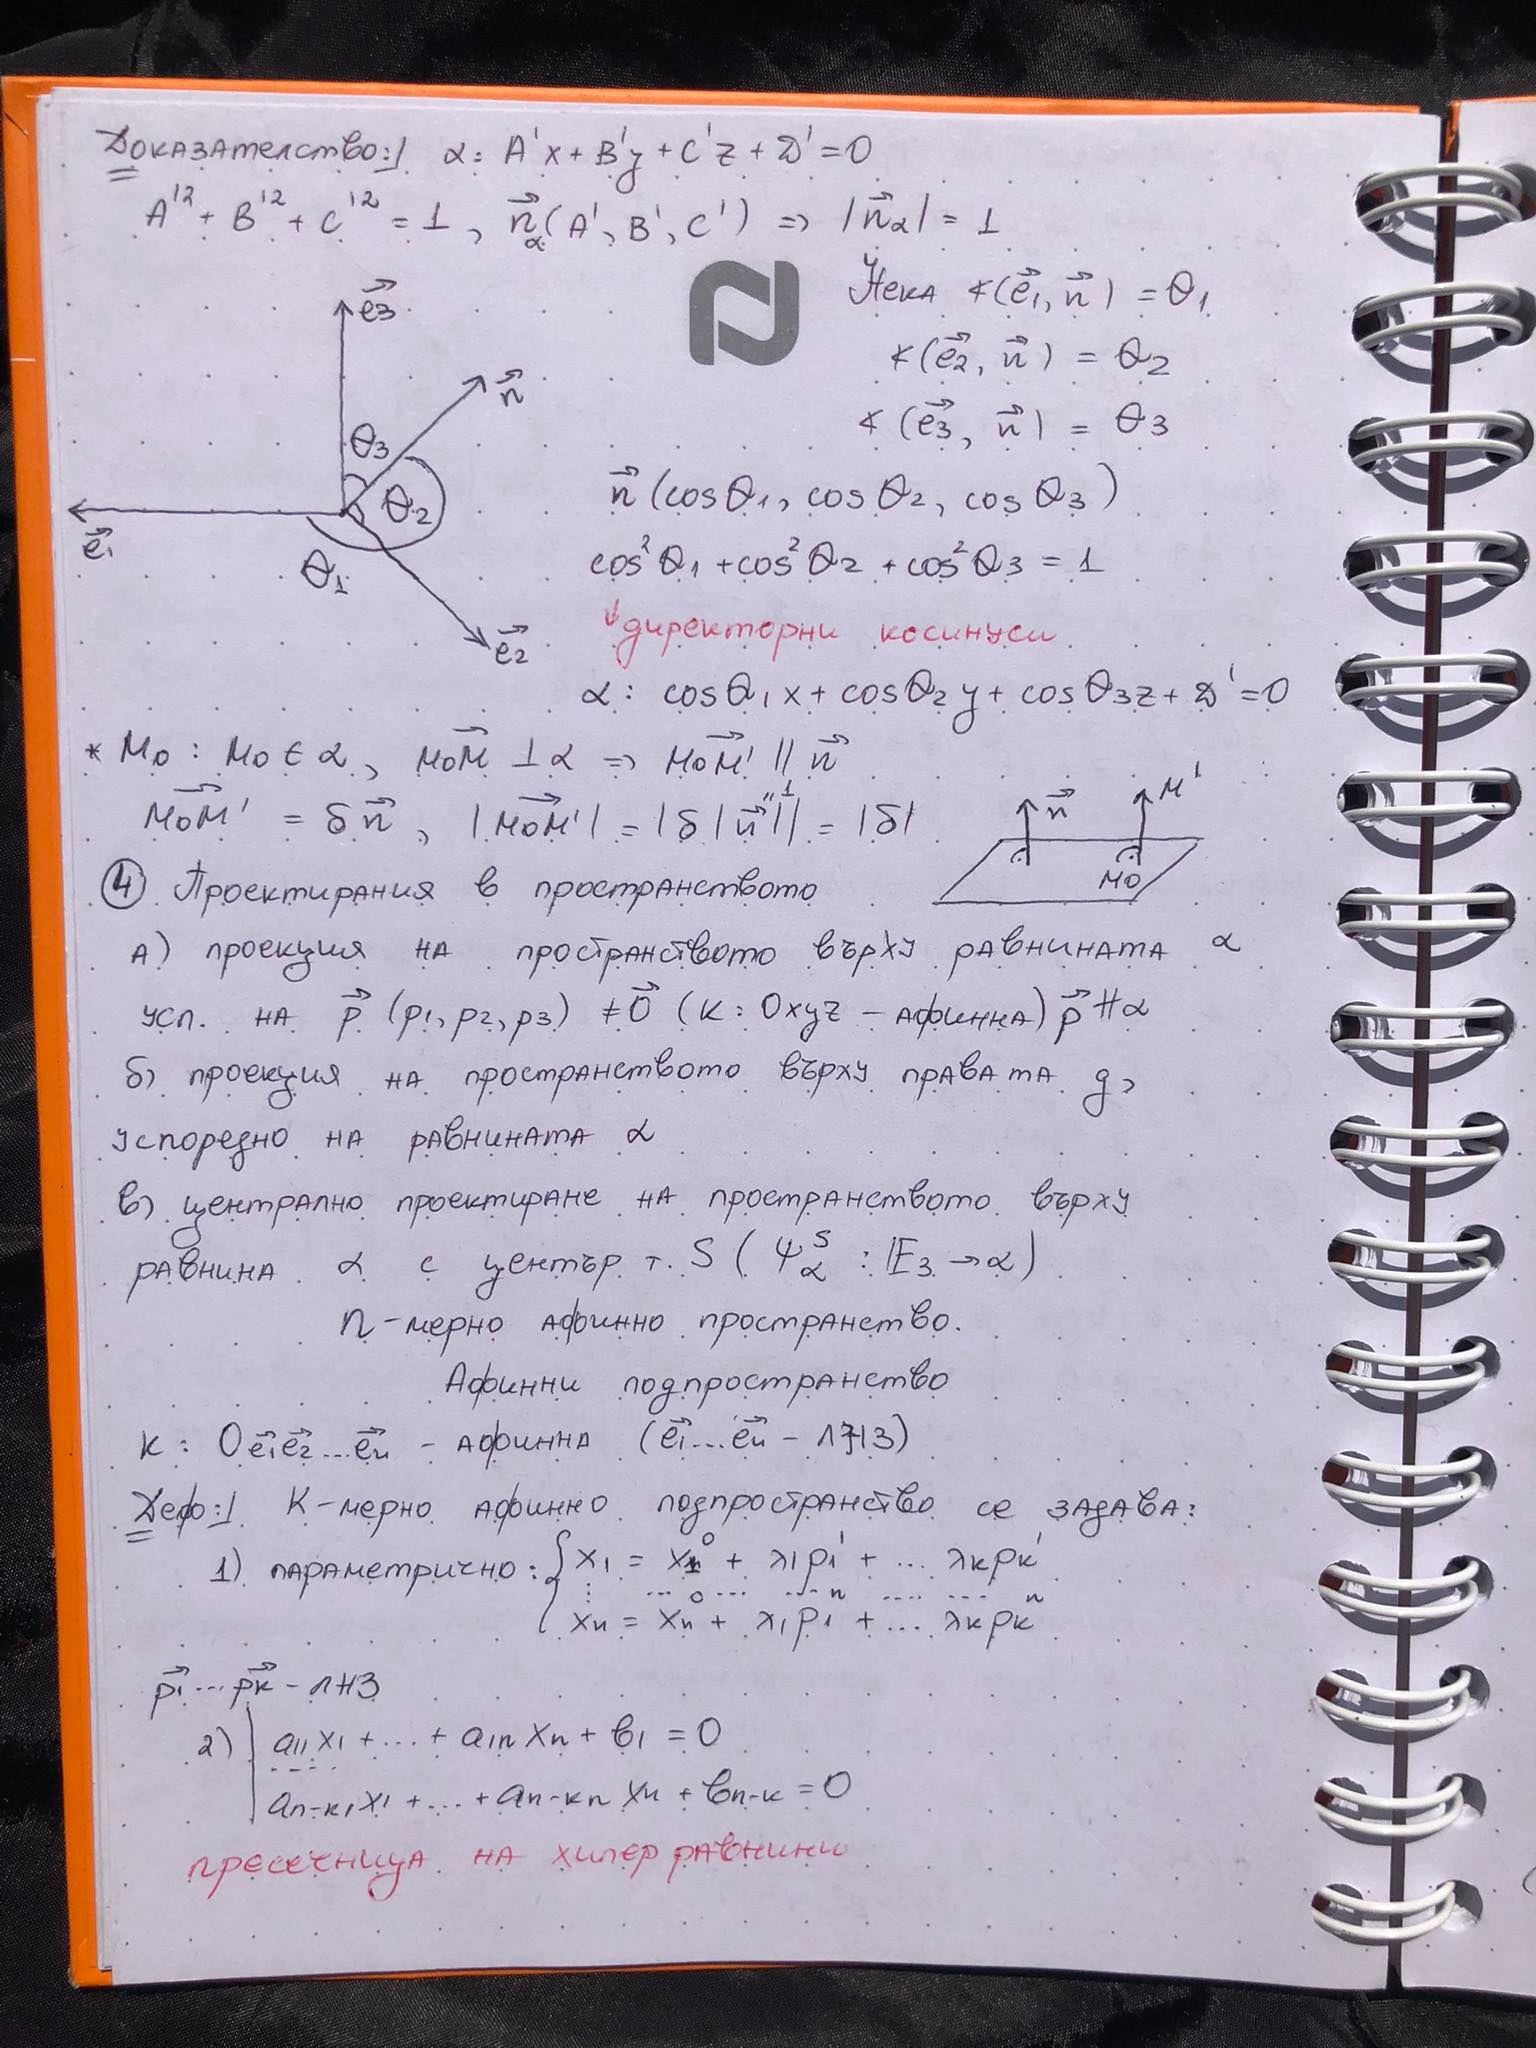 Доказателство:/ α: A'x + B'y + C'z + D' = 0
A'² + B'² + C'² = 1, n⃗α(A', B', C') => |n⃗α| = 1
Нека ∢(e⃗1, n⃗) = θ1
∢(e⃗2, n⃗) = θ2
∢(e⃗3, n⃗) = θ3
e⃗3
n⃗
θ3
θ2
e⃗1
θ1
e⃗2
n⃗(cosθ1, cosθ2, cosθ3)
cos²θ1 + cos²θ2 + cos²θ3 = 1
↓директорни косинуси
α: cosθ1x + cosθ2y + cosθ3z + D' = 0
* M0 : M0 ∈ α, M0M⃗ ⊥ α => M0M⃗' || n⃗
M0M⃗' = δn⃗, |M0M⃗'| = |δ|n⃗|| = |δ|
"1
n⃗ M'
M0
④ Проектирания в пространството
а) проекция на пространството върху равнината α
усп. на p⃗ (p1, p2, p3) ≠ 0⃗ (K: Oxyz - афинна) p⃗ ∦ α
б) проекция на пространството върху правата g,
успоредно на равнината α
в) централно проектиране на пространството върху
равнина α с център т. S (Ψα^S : E3 → α)
n-мерно афинно пространство.
Афинни подпространство
K: Oe⃗1e⃗2...e⃗n - афинна (e⃗1...e⃗n - ЛНЗ)
Деф:/ K-мерно афинно подпространство се задава:
1) параметрично: { x1 = x1⁰ + λ1p1¹ + ... λkpk¹
⋮ ... ... ... ...
xn = xn⁰ + λ1p1ⁿ + ... λkpkⁿ
p⃗1...p⃗k - ЛНЗ
2) | a11x1 + ... + a1nxn + b1 = 0
.....
an-k1x1 + ... + an-knxn + bn-k = 0
пресечница на хиперравнини